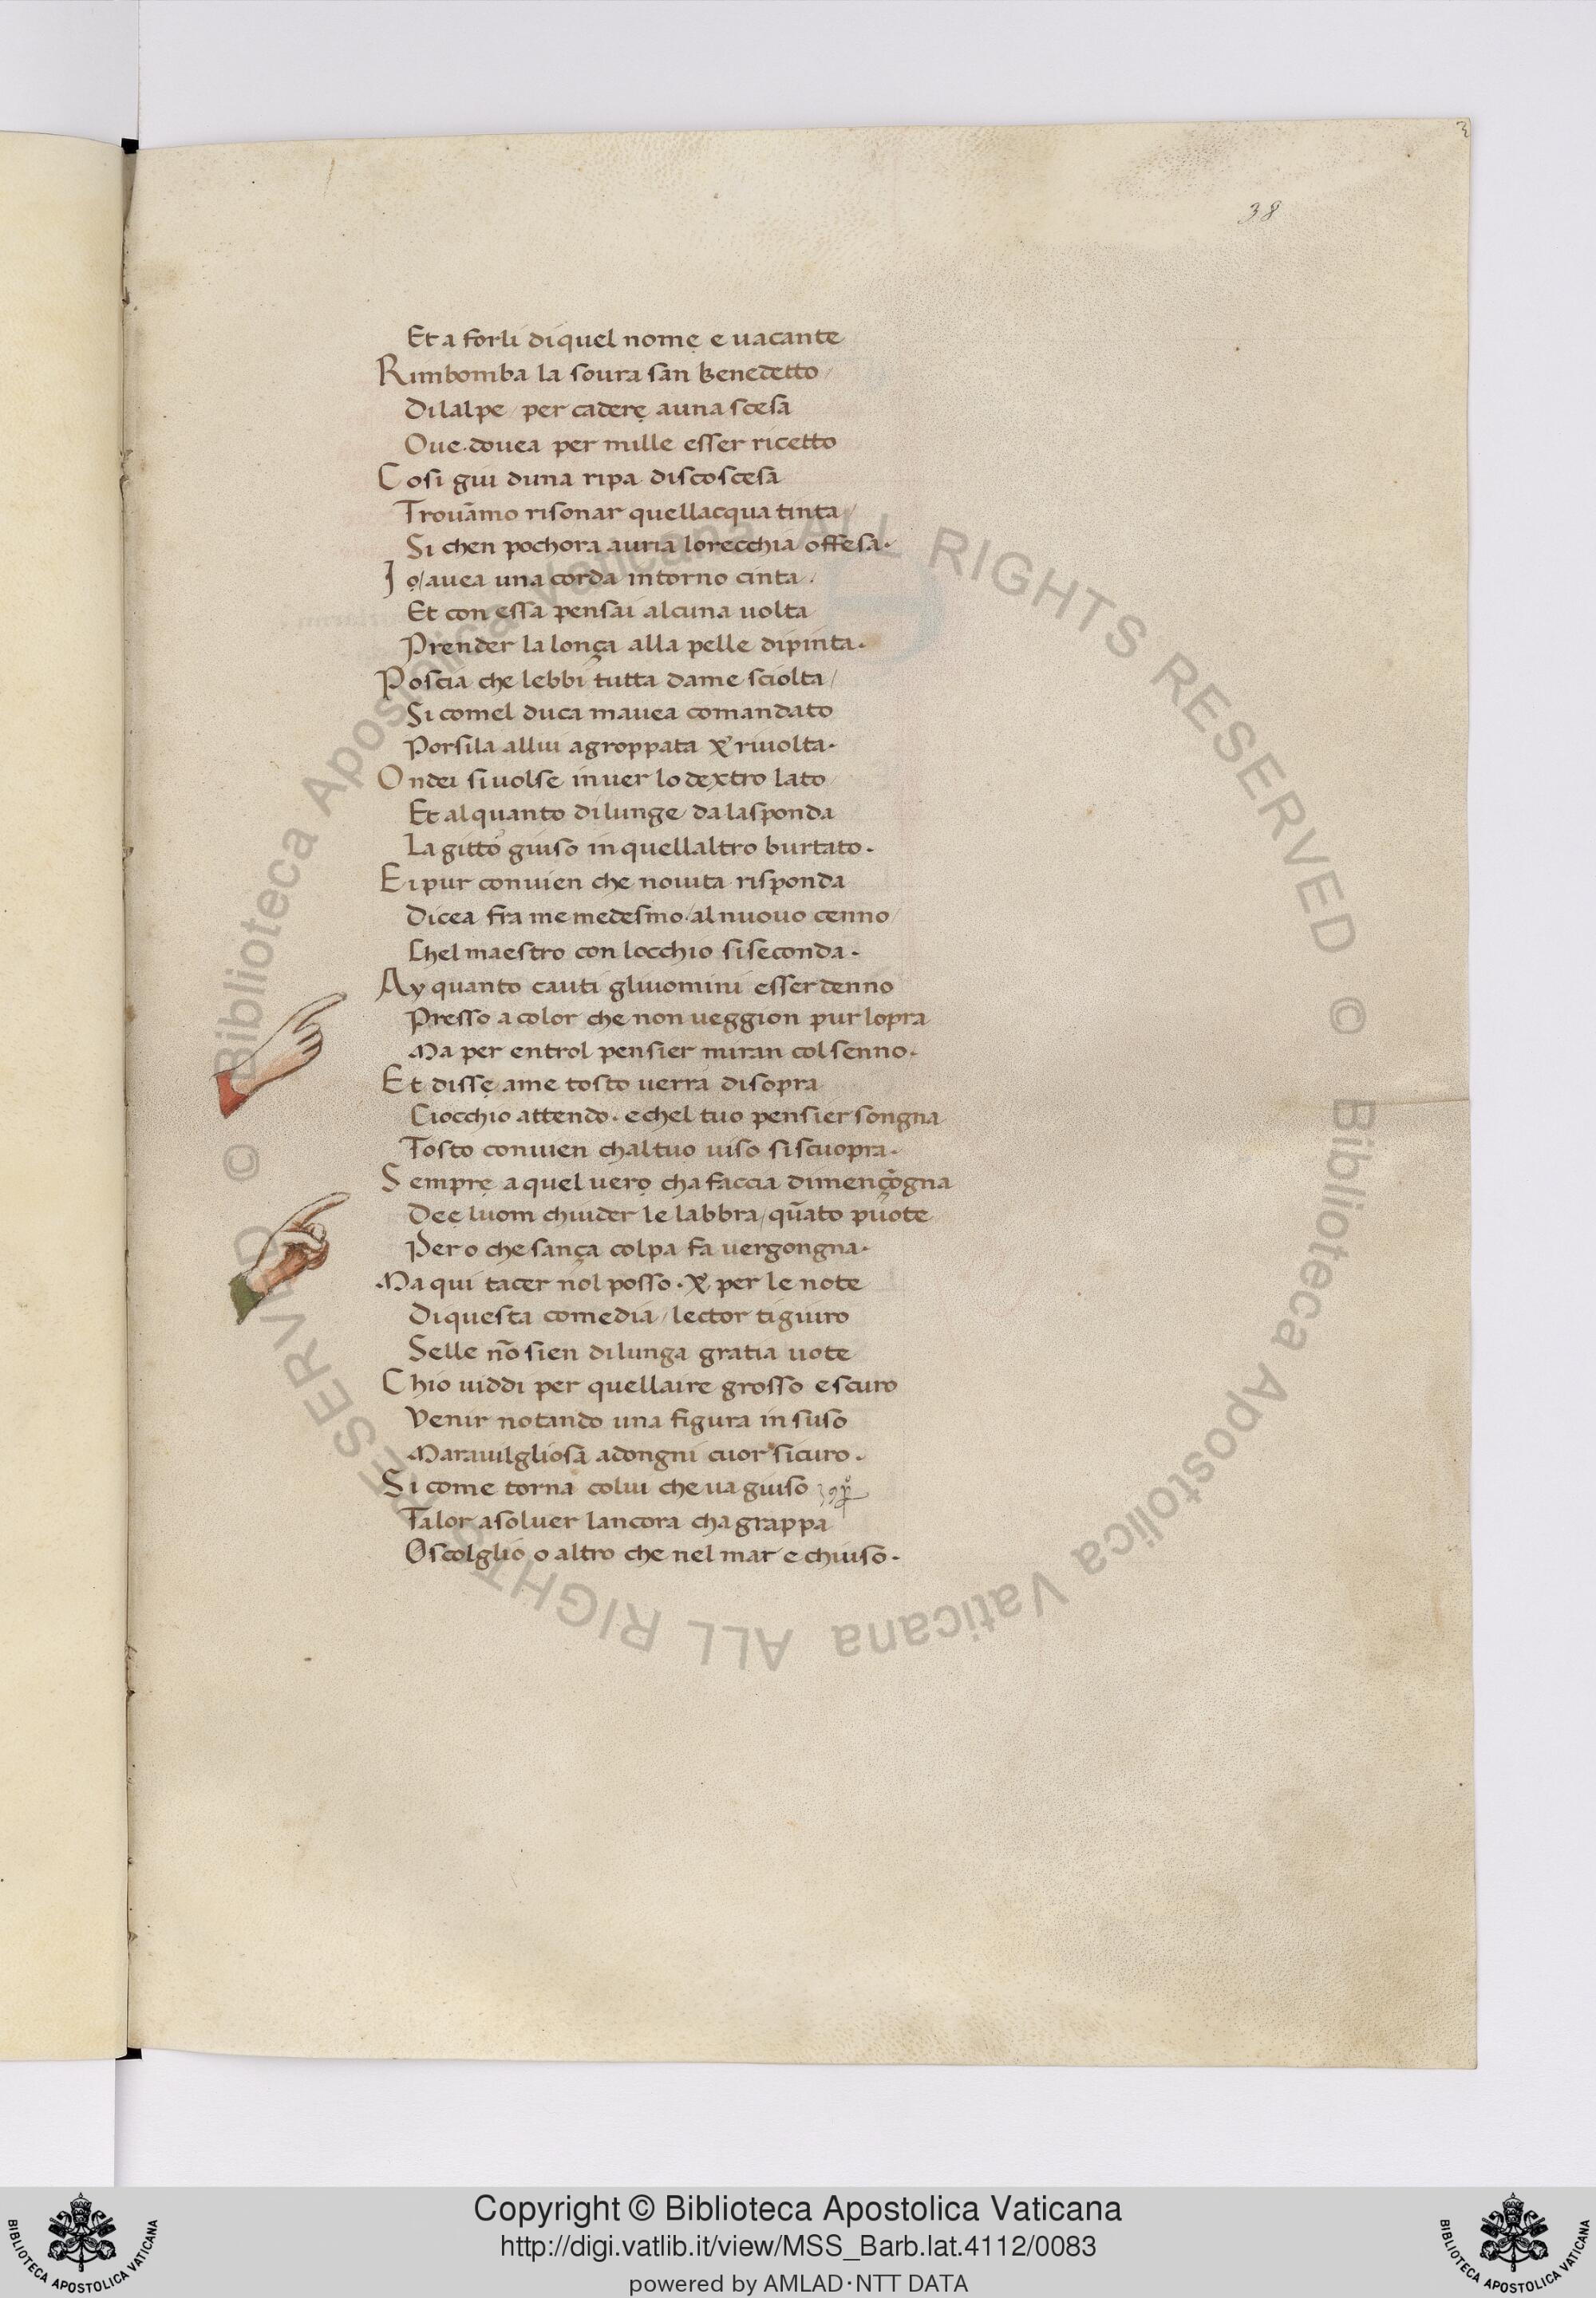 38
Et a forli di quel nomẹ e uacante
Rimbomba la soura san benedetto/
Di lalpe / per caderẹ a una scesa
Oue. douea per mille esser ricetto
Cosi giu duna ripa discoscesa
Trouāmo risonar quellacqua tinta/
Si chen pochora auria lorecchia offesa.
Iọ/auea una corda intorno cinta.
Et con essa pensai alcuna uolta
Prender la lonça alla pelle dipinta.
Poscia che lebbi tutta da me sciolta/
Si comel duca mauea comandato
Porsila allui agroppata & riuolta.
Ondei si uolse inuer lo dextro lato
Et alquanto di lunge da la sponda
La gitto giuso in quellaltro burtato.
Ei pur conuien che nouita risponda
Dicea fra me medesmo/al nuouo cenno/
Chel maestro con locchio si seconda.
Ay quanto cauti gliuomini esser denno
Presso a color che non ueggion pur lopra
Ma per entrol pensier miran col senno.
Et dissẹ ame tosto uerra di sopra
Ciocchio attendo. e chel tuo pensier songna
Tosto conuien chal tuo uiso si scuopra.
Semprẹ a quel uerọ cha faccia di mençogna
Deẹ luom chiuder le labbra/ quāto puote
Pero che sança colpa fa uergongna.
Ma qui tacer nol posso. & per le note
Di questa comedia/lector ti giuro
Selle nō sien di lunga gratia uote
Chio uiddi per quellaire grosso e scuro
Venir notando una figura in suso
Marauilgliosa adongni cuor sicuro.
Si come torna colui che ua giuso
Talor a soluer lancora chagrappa
O scolglio o altro che nel mar e chiuso.
© Biblioteca Apostolica Vaticana ALL RIGHTS RESERVED © Biblioteca Apostolica Vaticana ALL RIGHTS RESERVED
Copyright © Biblioteca Apostolica Vaticana
http://digi.vatlib.it/view/MSS_Barb.lat.4112/0083
powered by AMLAD·NTT DATA
BIBLIOTECA APOSTOLICA VATICANA
BIBLIOTECA APOSTOLICA VATICANA